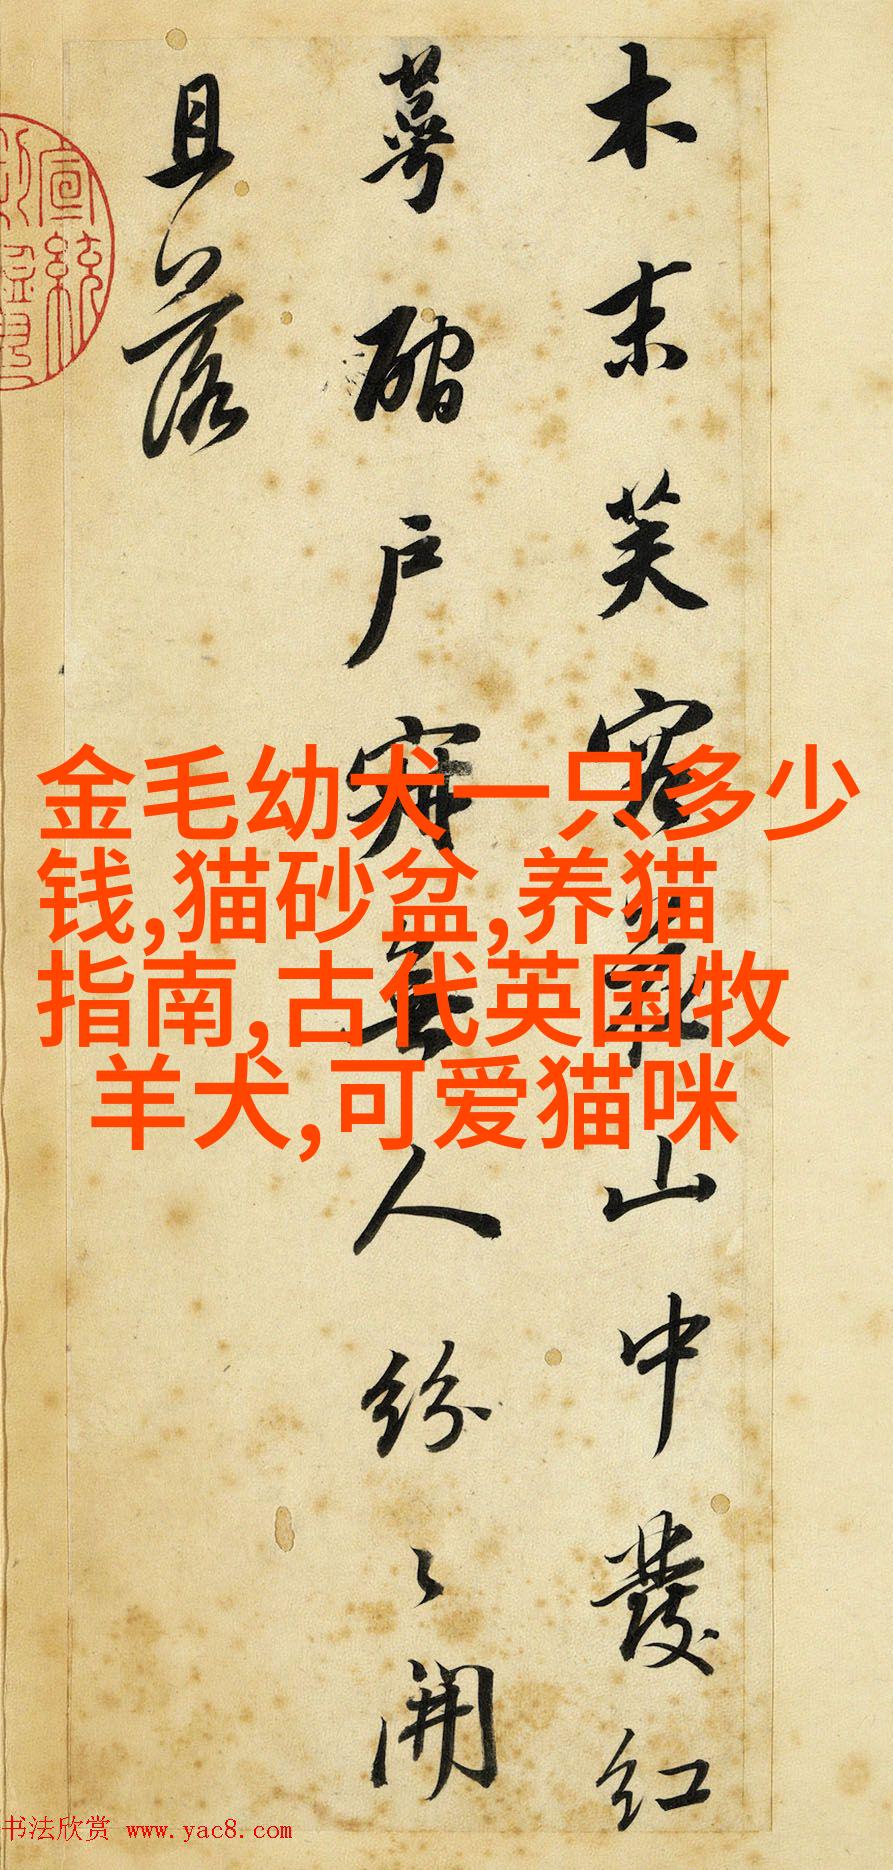 木末芙蓉花山中發紅
萼磵戶寂無人紛〻開
且落
宣統
金毛幼犬一只多少
钱,猫砂盆,养猫
指南,古代英国牧
羊犬,可爱猫咪
书法欣赏 www.yac8.com